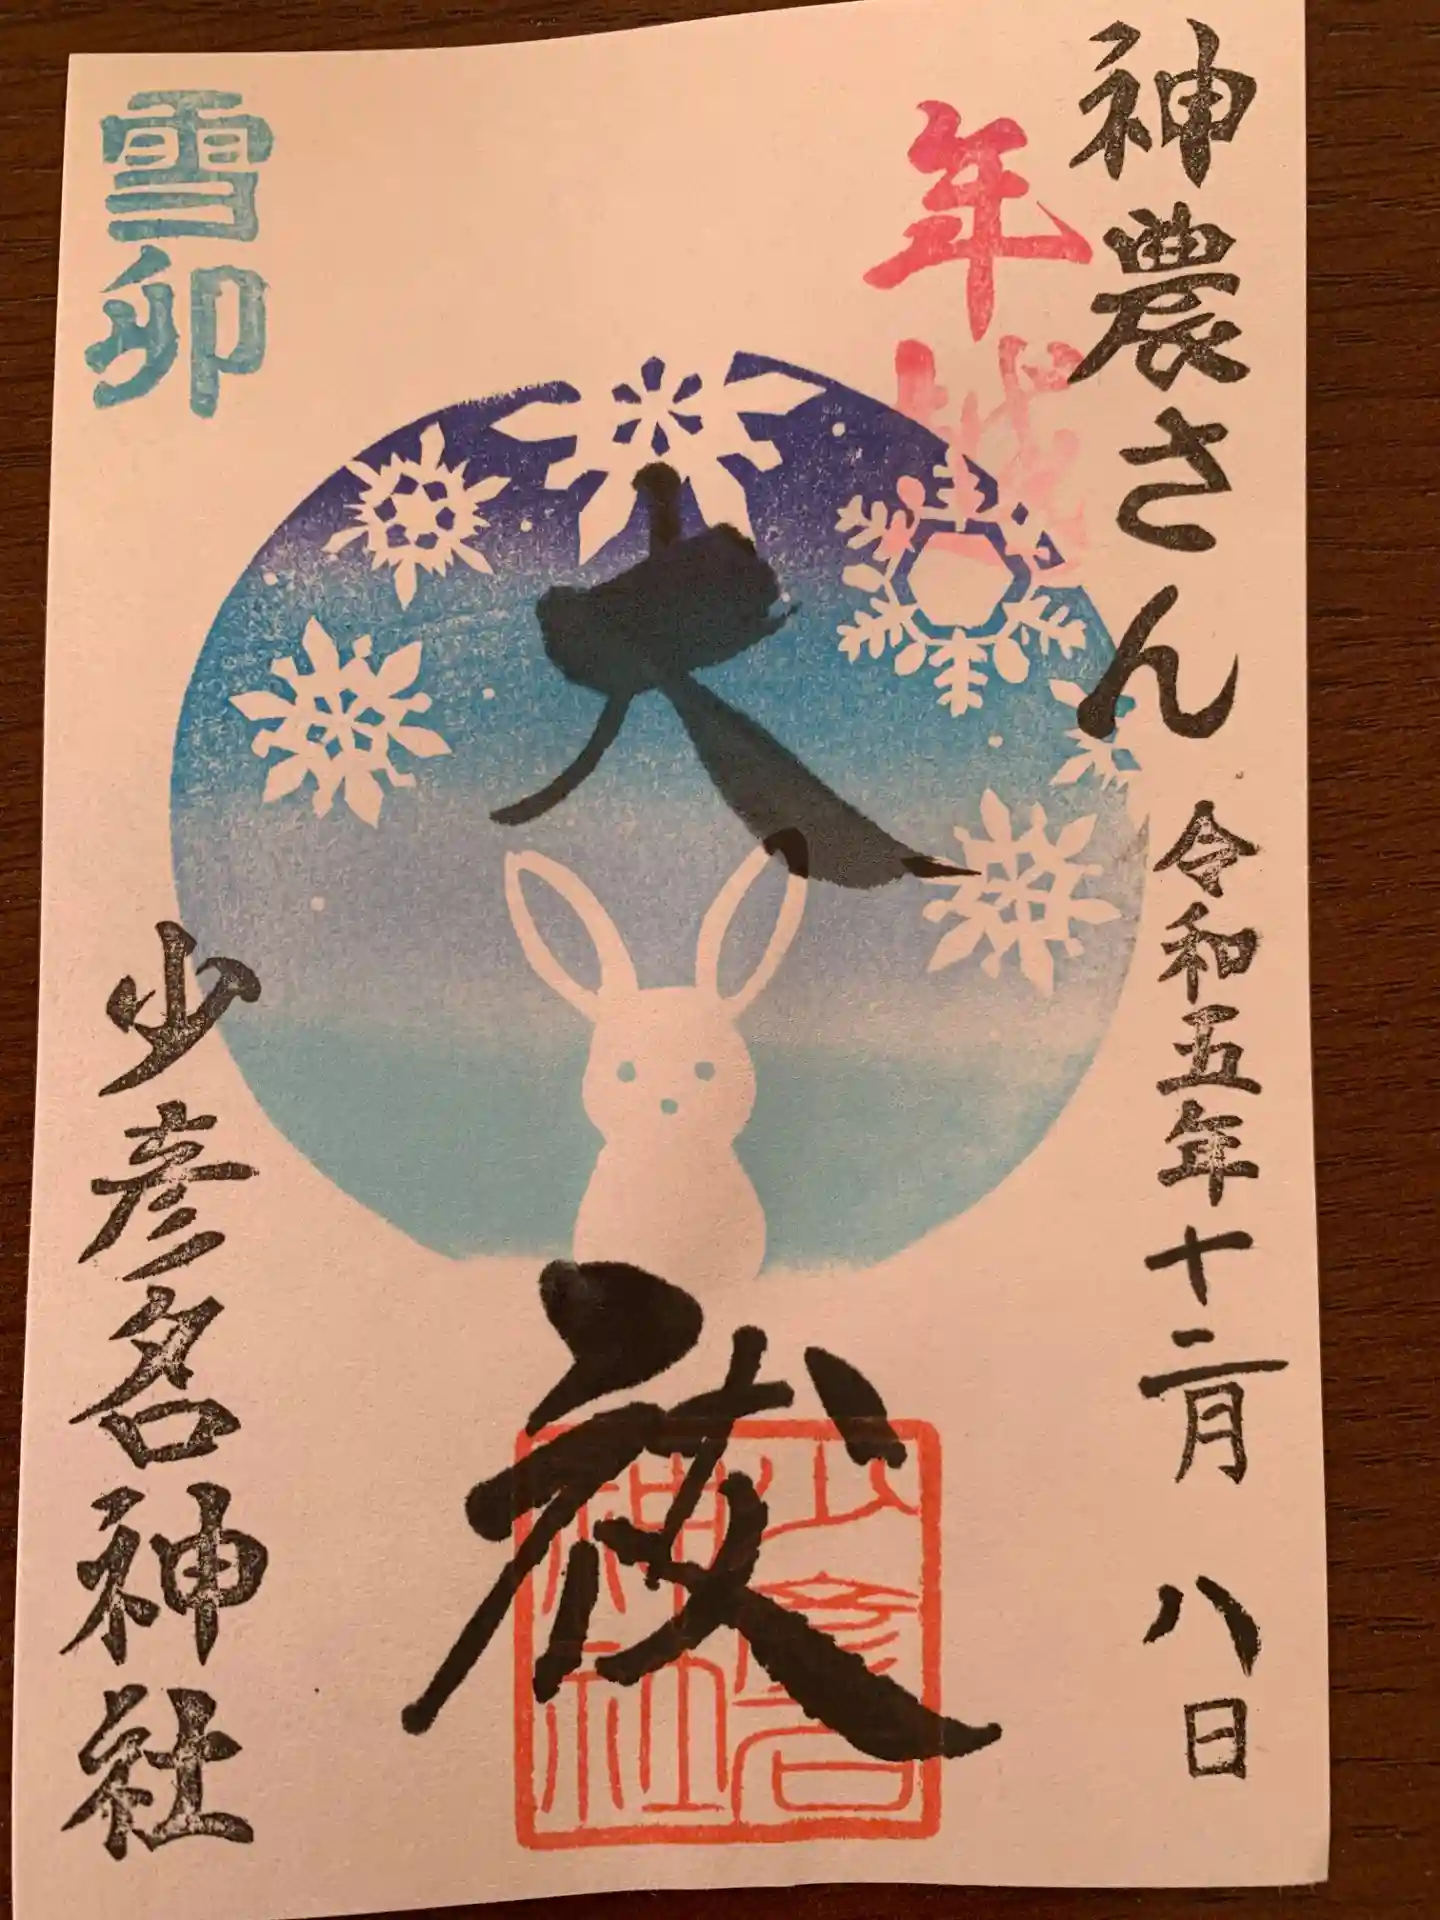 神農さん 令和五年十二月 八日
年越
大祓
雪卯
少彦名神社
少彦名
神社